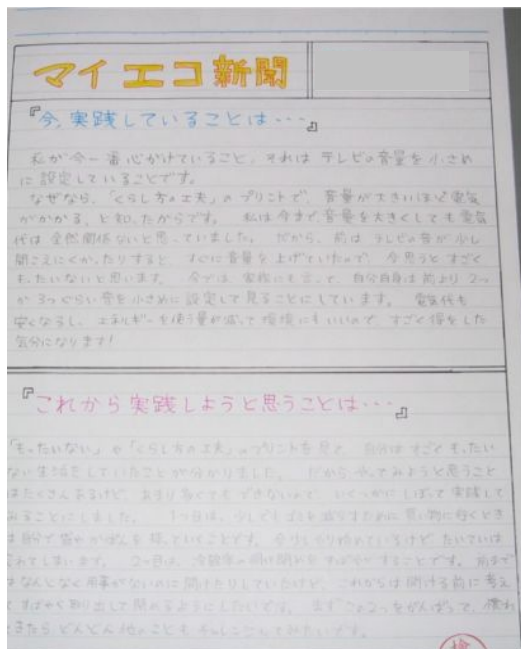 マイエコ新聞
『今、実践していることは・・・』
私が今一番心がけていること、それはテレビの音量を小さめ
に設定していることです。
なぜなら、「くらし方の工夫」のプリントで、音量が大きいほど電気
がかかる、と知ったからです。 私は今まで、音量を大きくしても電気
代は全然関係ないと思っていました。 だから、前はテレビの音が少し
聞こえにくかったりすると、すぐに音量を上げていたので、今思うとすごく
もったいないと思います。 今では、家族にも言って、自分自身は前より2つ
か3つぐらい音を小さめに設定して見ることにしています。 電気代も
安くなるし、エネルギーを使う量が減って環境にもいいので、すごく得をした
気分になります!
『これから実践しようと思うことは・・・』
「もったいない」や「くらし方の工夫」のプリントを見て、自分はすごくもったい
ない生活をしていたことが分かりました。 だからやってみようと思うこと
はたくさんあるけど、あまり多くてもできないので、いくつかにしぼって実践して
みることにしました。 1つ目は、少しでもゴミを減らすために買い物に行くとき
は自分で袋やかばんを持っていくことです。 今少しやり始めているけど、たいていは
忘れてしまいます。 2つ目は、冷蔵庫の開け閉めをすばやくすることです。 前まで
はなんとなく用事がないのに開けたりしていたけど、これからは開ける前に考え
てすばやく取り出して閉めるようにしたいです。 まずこの2つをがんばって、慣れ
てきたらどんどん他のことも